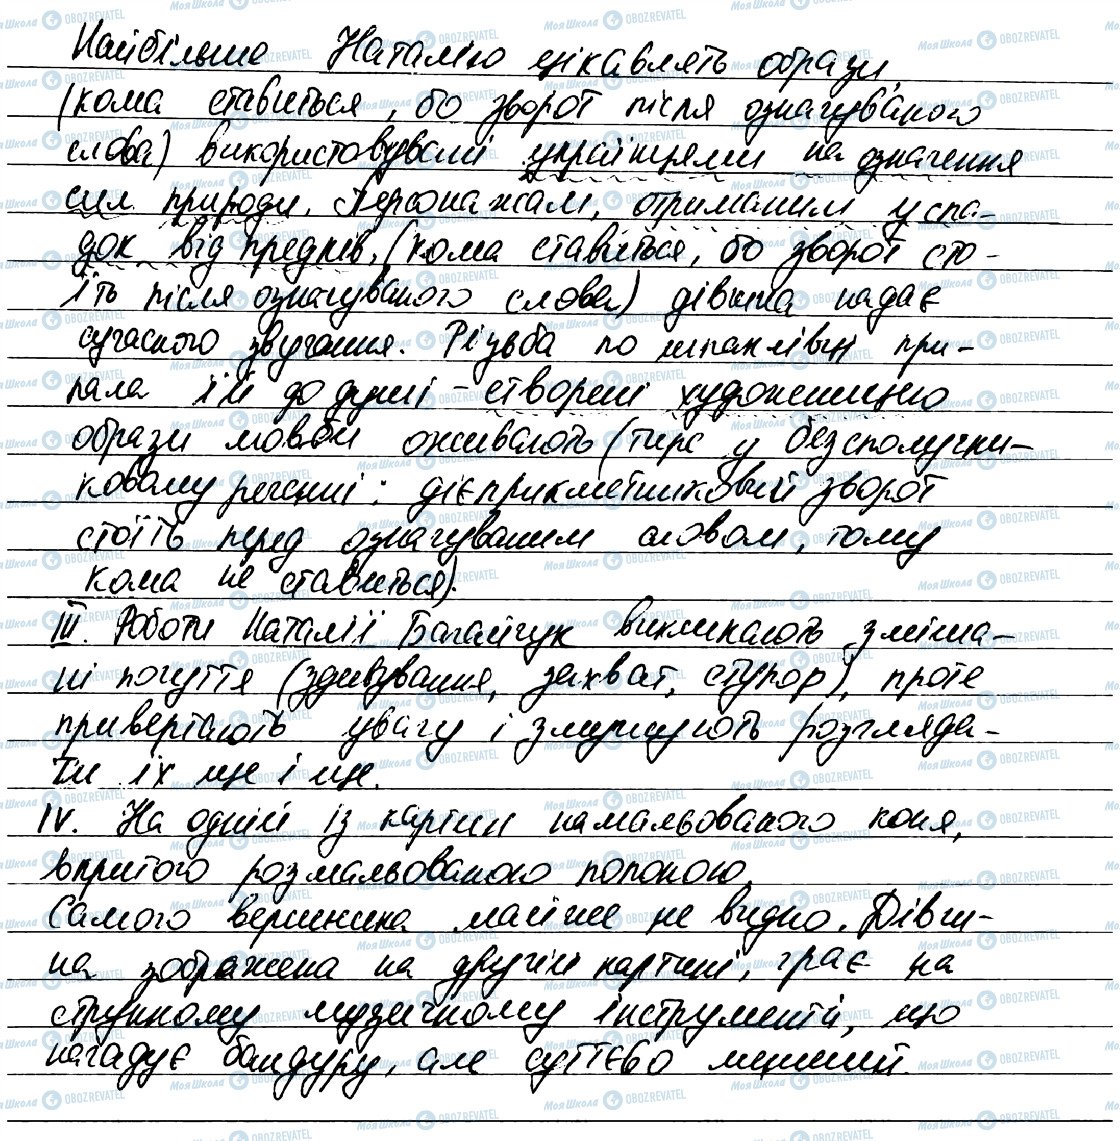 Найбільше Наталію цікавлять образи,
(кома ставиться, бо зворот після означуваного
слова) використовувані українцями на означення
сил природи. Персонажам, отриманим у спа-
док від предків, (кома ставиться, бо зворот сто-
їть після означуваного слова) дівчина надає
сучасного звучання. Різьба по шпаклівці при-
пала їй до душі – створені художницею
образи мовби оживають (тире у безсполучни-
ковому реченні: дієприкметниковий зворот
стоїть перед означуваним словом, тому
кома не ставиться).
III. Роботи Наталії Багацчук викликають зміша-
ні почуття (здивування, захват, ступор), проте
привертають увагу і змушують розгляда-
ти їх ще і ще.
IV. На одній із картин намальованого коня,
вкритого розмальованою попоною.
Самого вершника майже не видно. Дівчи-
на зображена на другій картині, грає на
струнному музичному інструменті, що
нагадує бандуру, але суттєво менший.